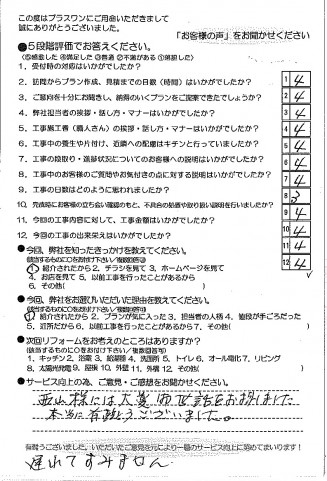 この度はプラスワンにご用命いただきまして
誠にありがとうございました。
「お客様の声」をお聞かせください
●5段階評価でお答えください。
⑤感激した ④満足した ③普通 ②不満がある ①落胆した
1. 受付時の対応はいかがでしたか? 1 4
2. 訪問からプラン作成、見積までの日数（時間）はいかがでしたか? 2 4
3. ご意向を十分にお聞きし、納得のいくプランをご提案できたでしょうか? 3 4
4. 弊社担当者の挨拶・話し方・マナーはいかがでしたか? 4 4
5. 工事施工者（職人さん）の挨拶・話し方・マナーはいかがでしたか? 5 4
6. 工事中の養生や片付け、近隣への配慮はキチンと行っていましたか? 6 4
7. 工事の段取り・進捗状況についてのお客様への説明はいかがでしたか? 7 4
8. 工事中のお客様のご質問やお気付きの点に対する説明はいかがでしたか? 8 3
9. 工事の日数はどのように思われましたか? 9 4
10. 完成時にお客様の立ち会い確認のもと、不具合の処置や取り扱い説明を行いましたか? 10 4
11. 今回の工事内容に対して、工事金額はいかがでしたか? 11 4
12. 今回の工事の出来栄えはいかがでしたか? 12 4
●今回、弊社を知ったきっかけを教えてください。
(該当するもの○をお付け下さい/複数回答可)
① 紹介されたから 2. チラシを見て 3. ホームページを見て
4. お店を見て 5. 以前工事を行ったことがあるから
6. その他(　　)
●今回、弊社をお選びいただいた理由を教えてください。
(該当するもの○をお付け下さい/複数回答可)
① 紹介されたから 2. プランが気に入った 3. 担当者の人柄 4. 値段が手ごろだった
5. 近所だから 6. 以前工事を行ったことがあるから 7. その他(　　)
●次回リフォームをお考えのところはありますか?
(該当するものに○をお付け下さい/複数回答可)
1. キッチン 2. 浴室 3. 給湯器 4. 洗面所 5. トイレ 6. オール電化 7. リビング
8. 太陽光発電 9. 屋根 10. 外壁 11. 外構 12. その他(　　)
●サービス向上の為、ご意見・ご感想をお聞かせください。
西山様には大変お世話をお掛けしました
本当に有難うございました。
有難うございました。いただいたご意見を元により一層のサービス向上に努めてまいります!
遅れてすみません